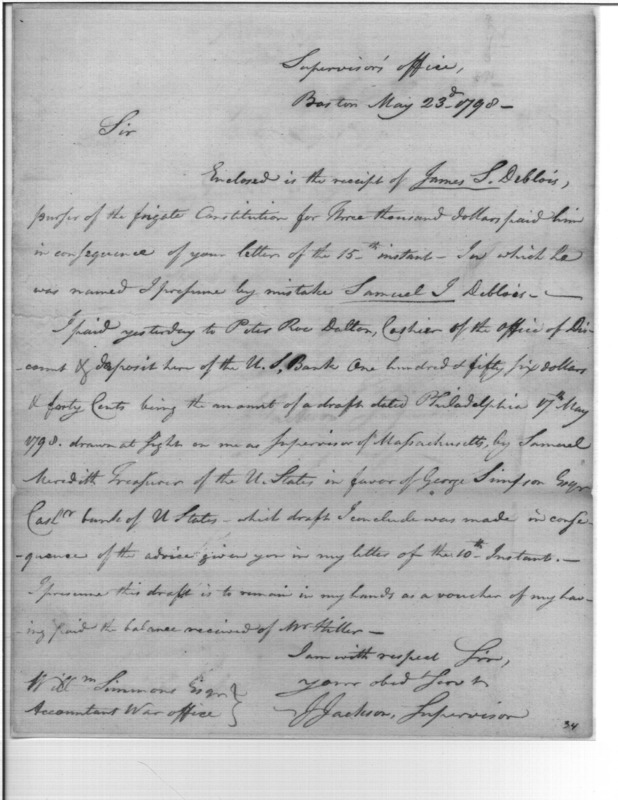 Supervisor's office,
Boston May 23d 1798 –
Sir
Enclosed is the receipt of James S. Deblois,
purser of the frigate Constitution for three thousand dollars paid him
in consequence of your letter of the 15th instant – In which he
was named I presume by mistake Samuel J Deblois –
I paid yesterday to Peter Roe Dalton, Cashier of the office of Dis-
-count & deposit here of the U. S. Bank One hundred & fifty six dollars
& forty Cents being the amount of a draft dated Philadelphia 17th May
1798. drawn at sight on me as Supervisor of Massachusetts, by Samuel
Meredith Treasurer of the U. States in favor of George Simpson Esqr
Cashr bank of U States – which draft I conclude was made in conse-
-quence of the advice given you in my letter of the 10th Instant. –
I presume this draft is to remain in my hands as a voucher of my hav-
-ing paid the balance received of Mr Hiller –
I am with respect Sir,
your obed Servt
J Jackson, Supervisor
Willm Simmons Esqr
Accountant War office
34